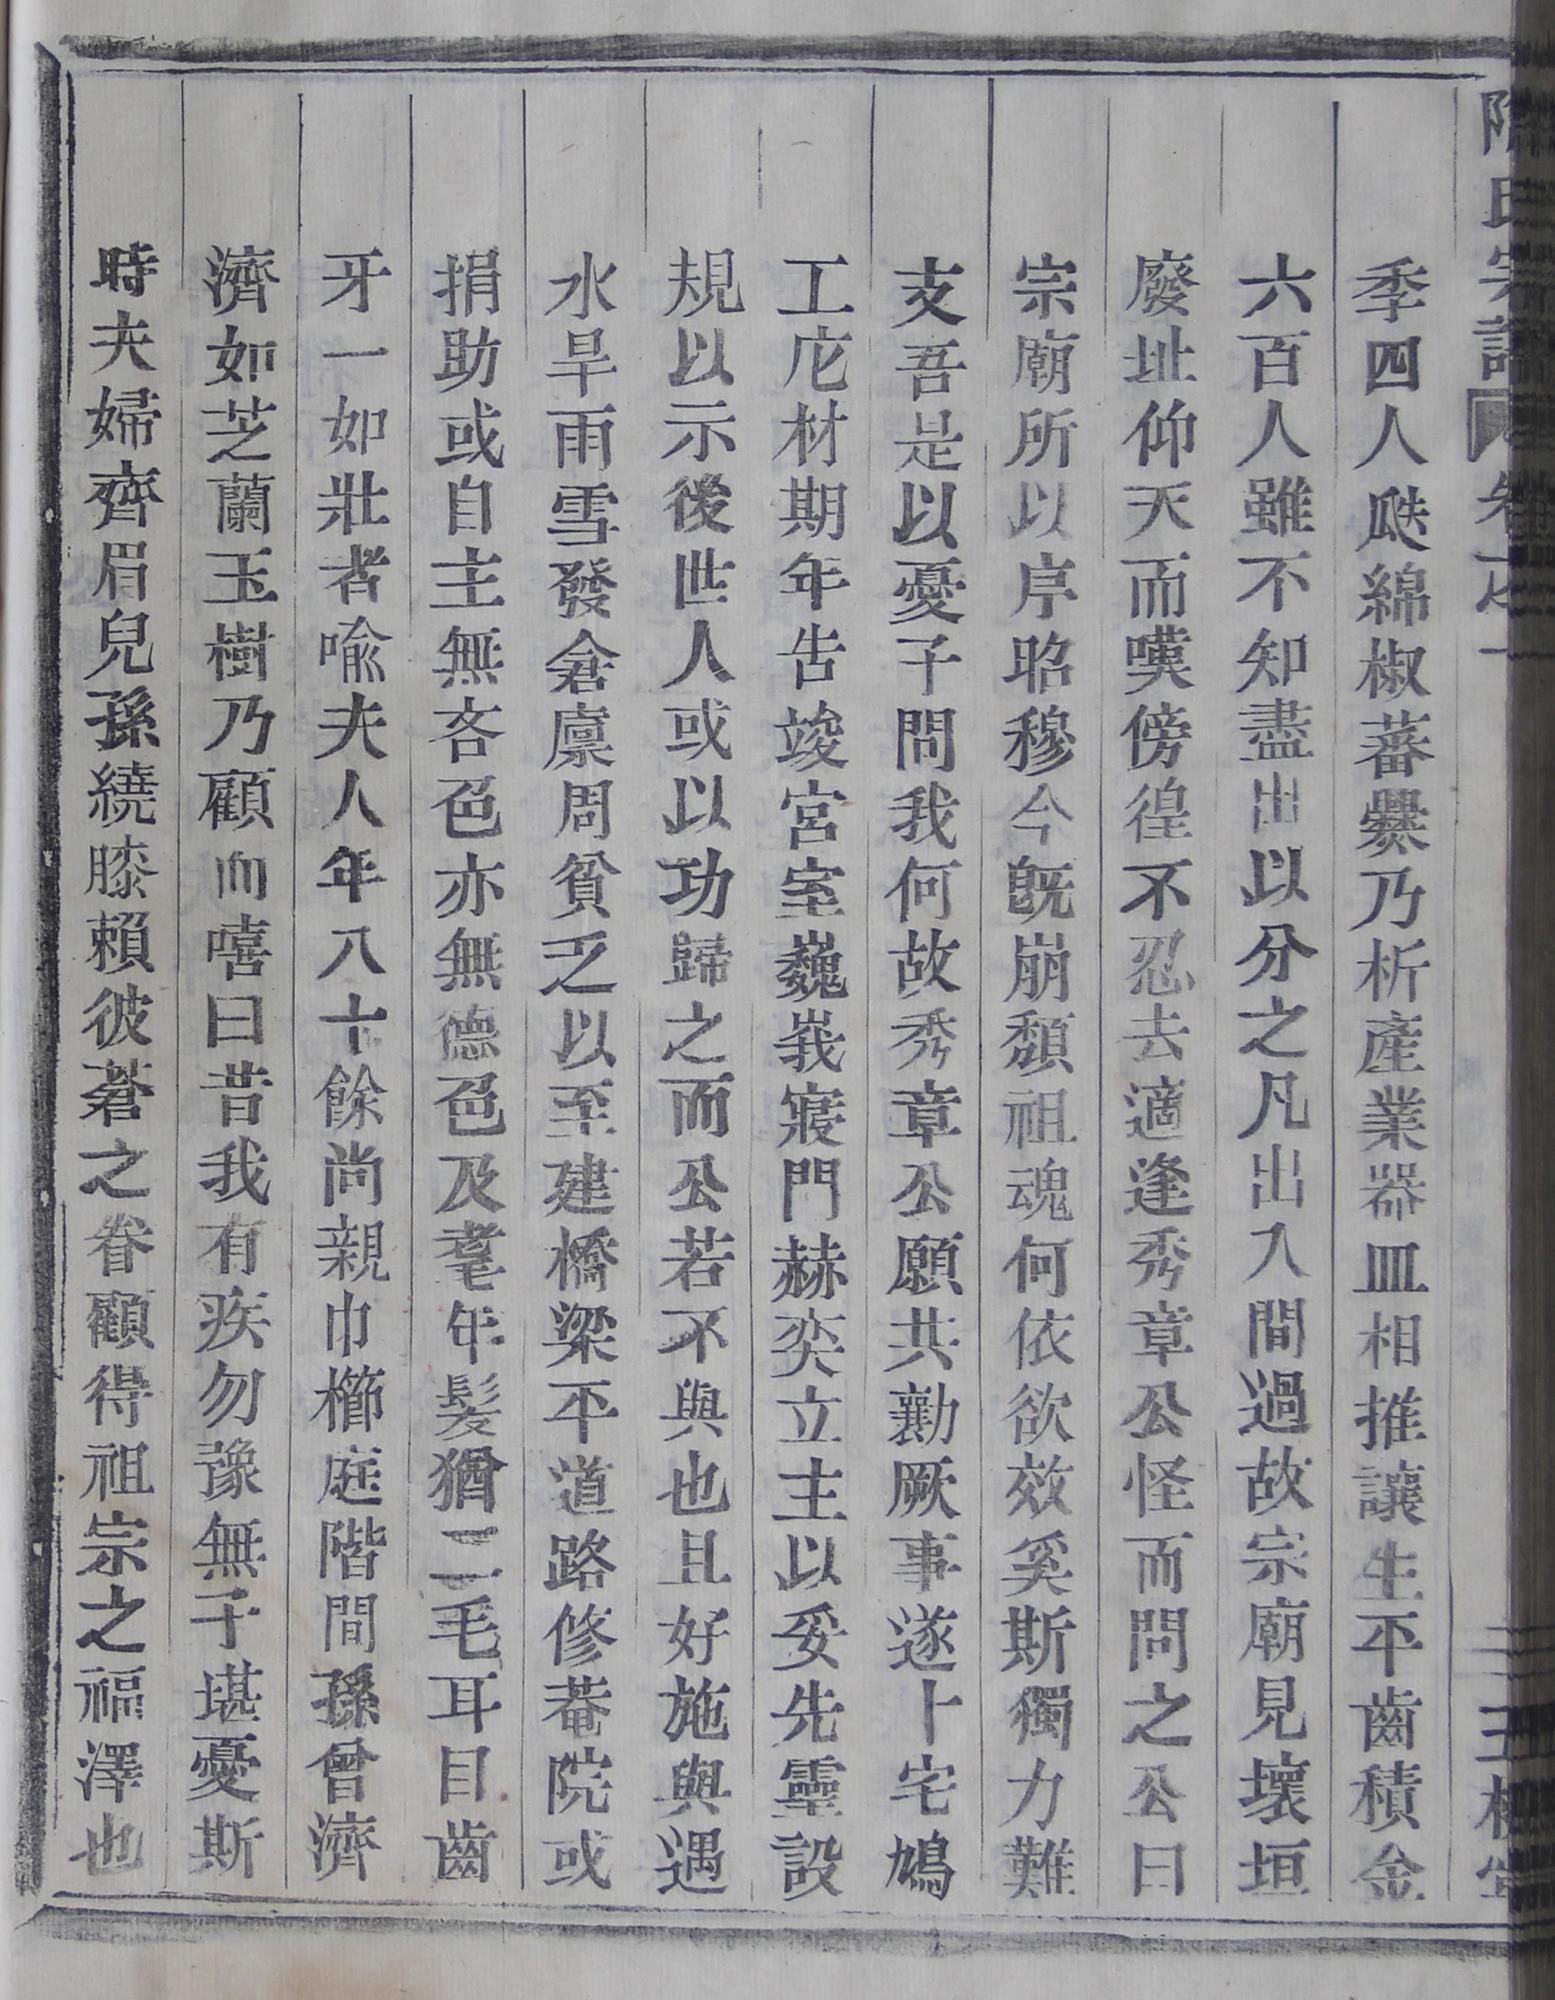 氏宗譜 卷之一
季四人瓞綿椒蕃爨乃析產業器皿相推讓生平齒積金
六百人雖不知盡出以分之凡出入間過故宗廟見壞垣
廢址仰天而嘆傍徨不忍去適逢秀章公怪而問之公曰
宗廟所以序昭穆今旣崩頽祖魂何依欲效奚斯獨力難
支吾是以憂子問我何故秀章公願共勷厥事遂卜宅鳩
工庀材期年告竣宮室巍峩寢門赫奕立主以妥先靈設
規以示後世人或以功歸之而公若不與也且好施與遇
水旱雨雪發倉廩周貧乏以至建橋梁平道路修菴院或
捐助或自主無吝色亦無德色及耄年髮猶二毛耳目齒
牙一如壯者喩夫人年八十餘尚親巾櫛庭階間孫曾濟
濟如芝蘭玉樹乃顧而嘻曰昔我有疾勿豫無子堪憂斯
時夫婦齊眉兒孫繞膝賴彼蒼之眷顧得祖宗之福澤也